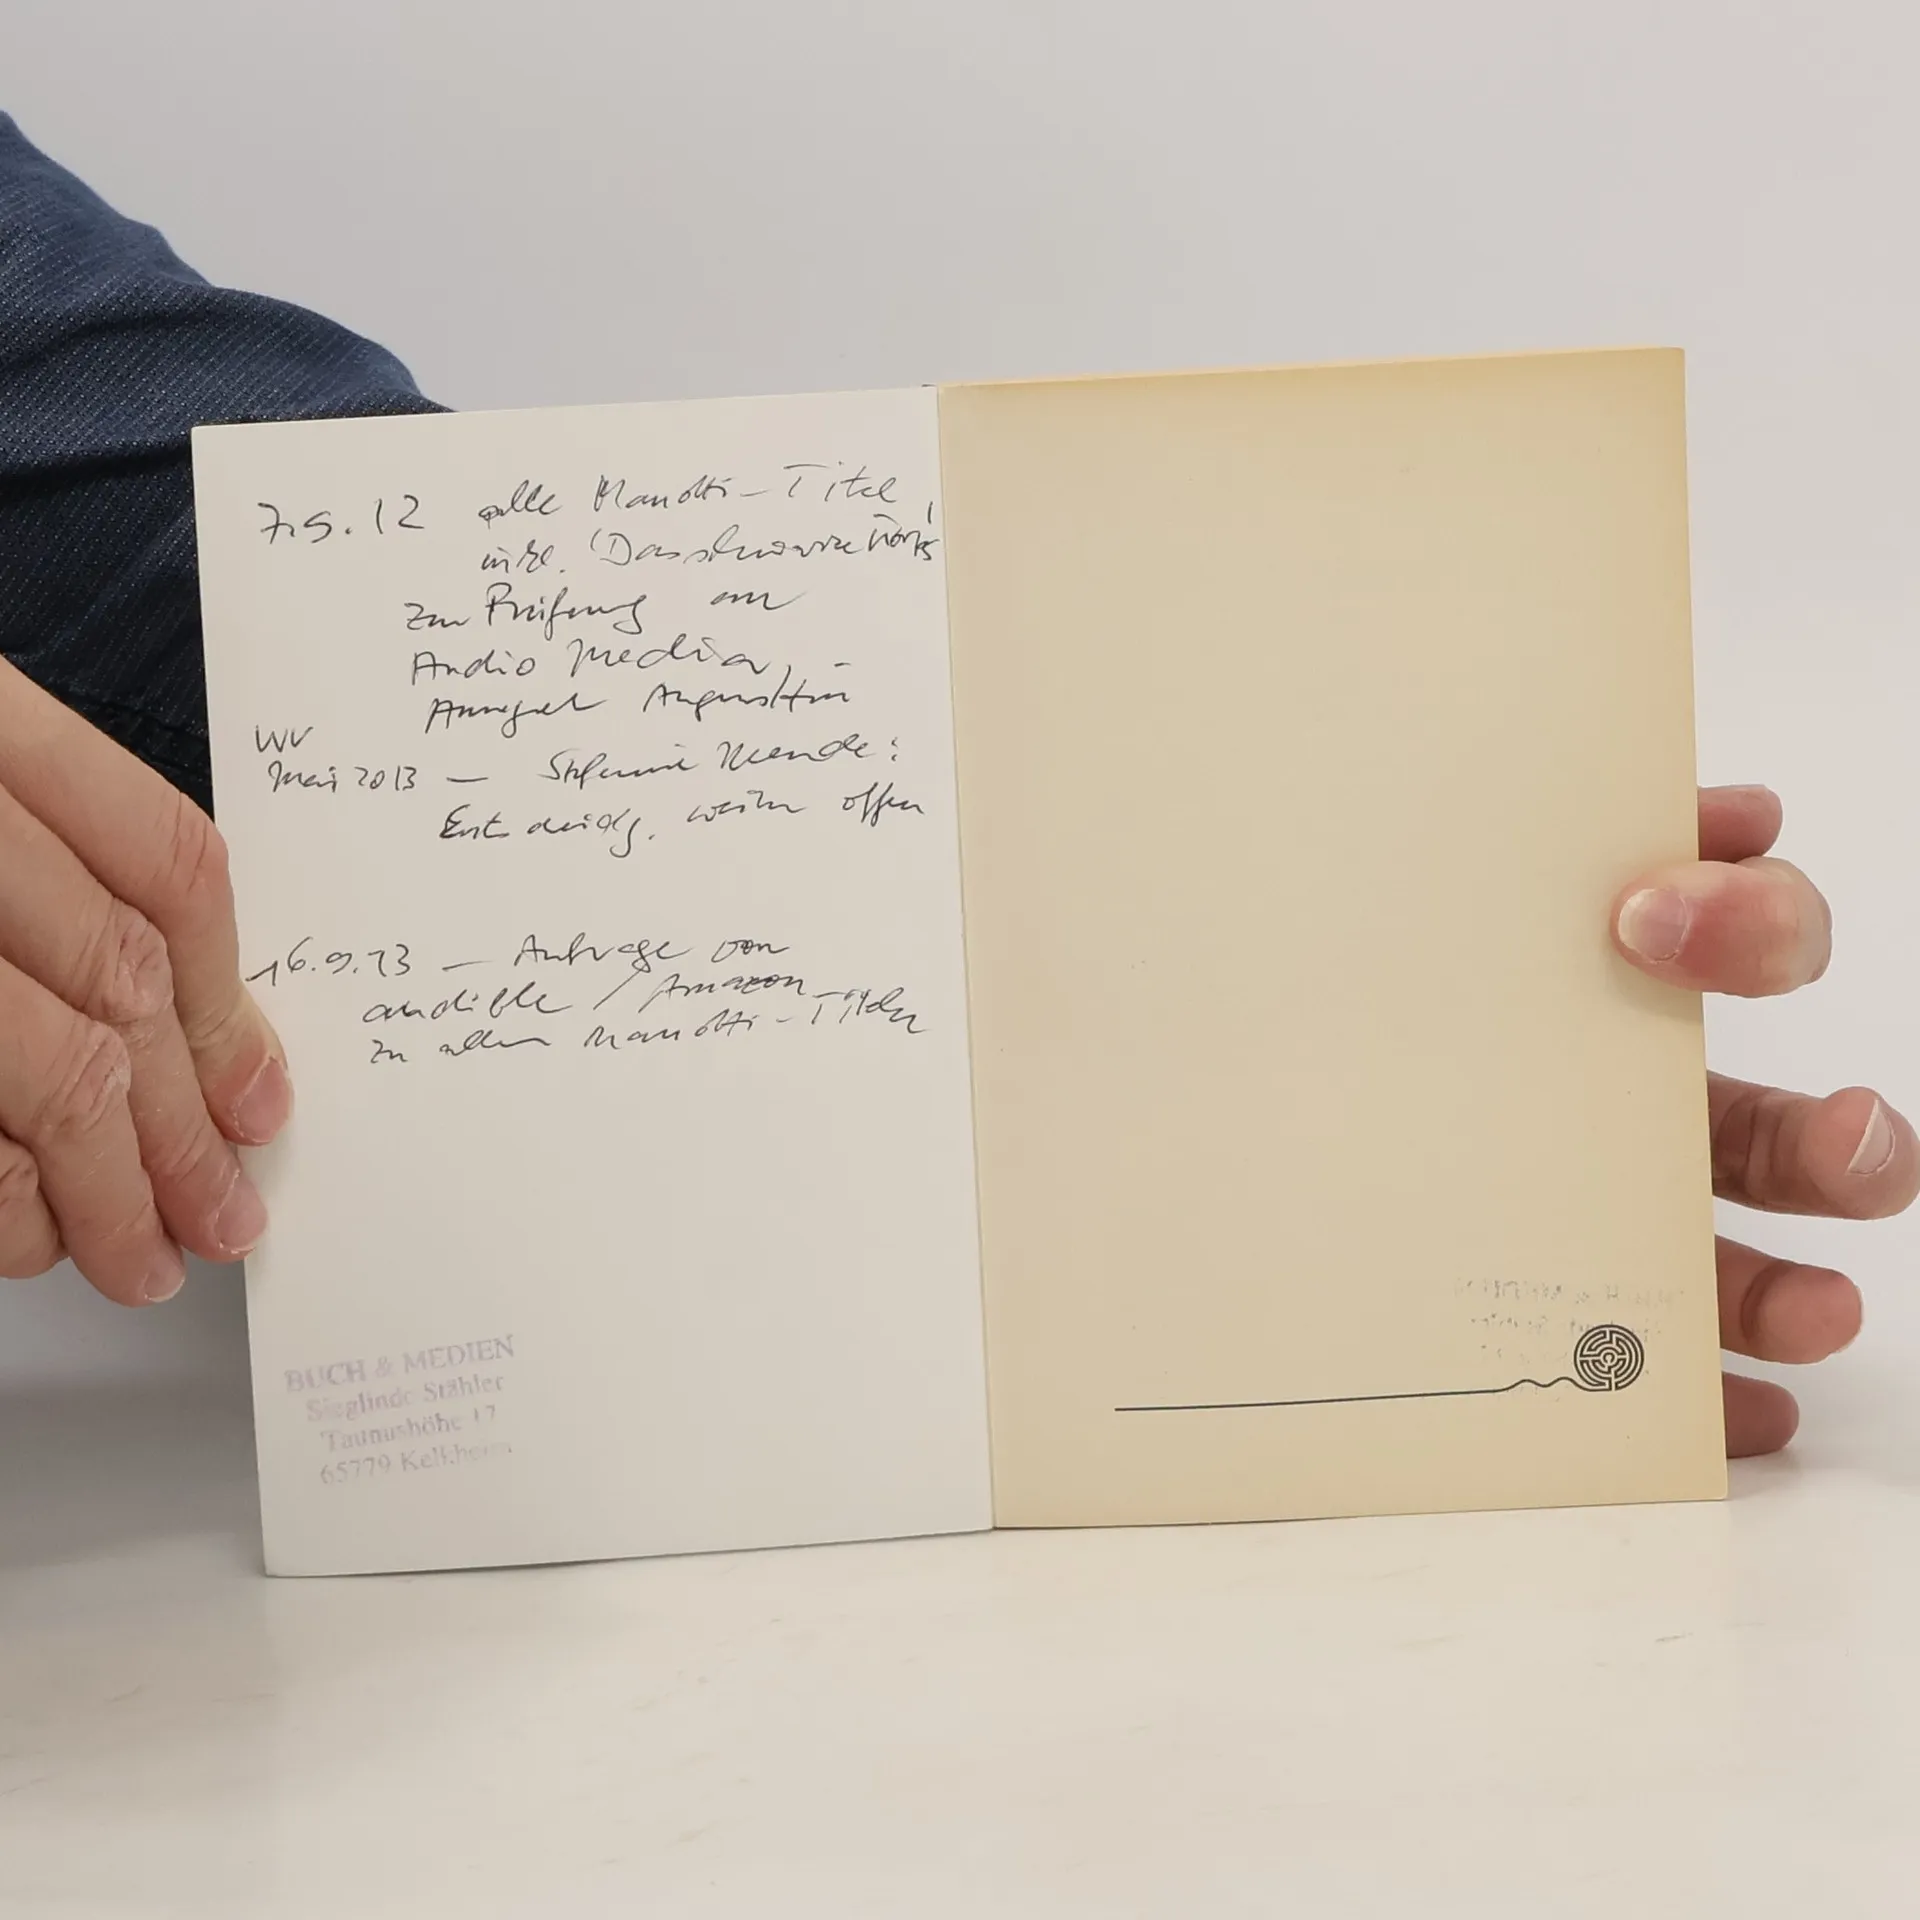 7.5.12 alle Manotti-Titel,
inkl. "Das schwarze Korps"
zur Prüfung an
Audio Media,
Annegret Augustin
WV
Mai 2013 — Stefanie Mende:
Entscheidg. weiter offen
16.9.13 — Anfrage von
audible / Amazon
zu allen Manotti-Titeln
BUCH & MEDIEN
Sieglinde Stähler
Taunushöhe 17
65779 Kelkheim